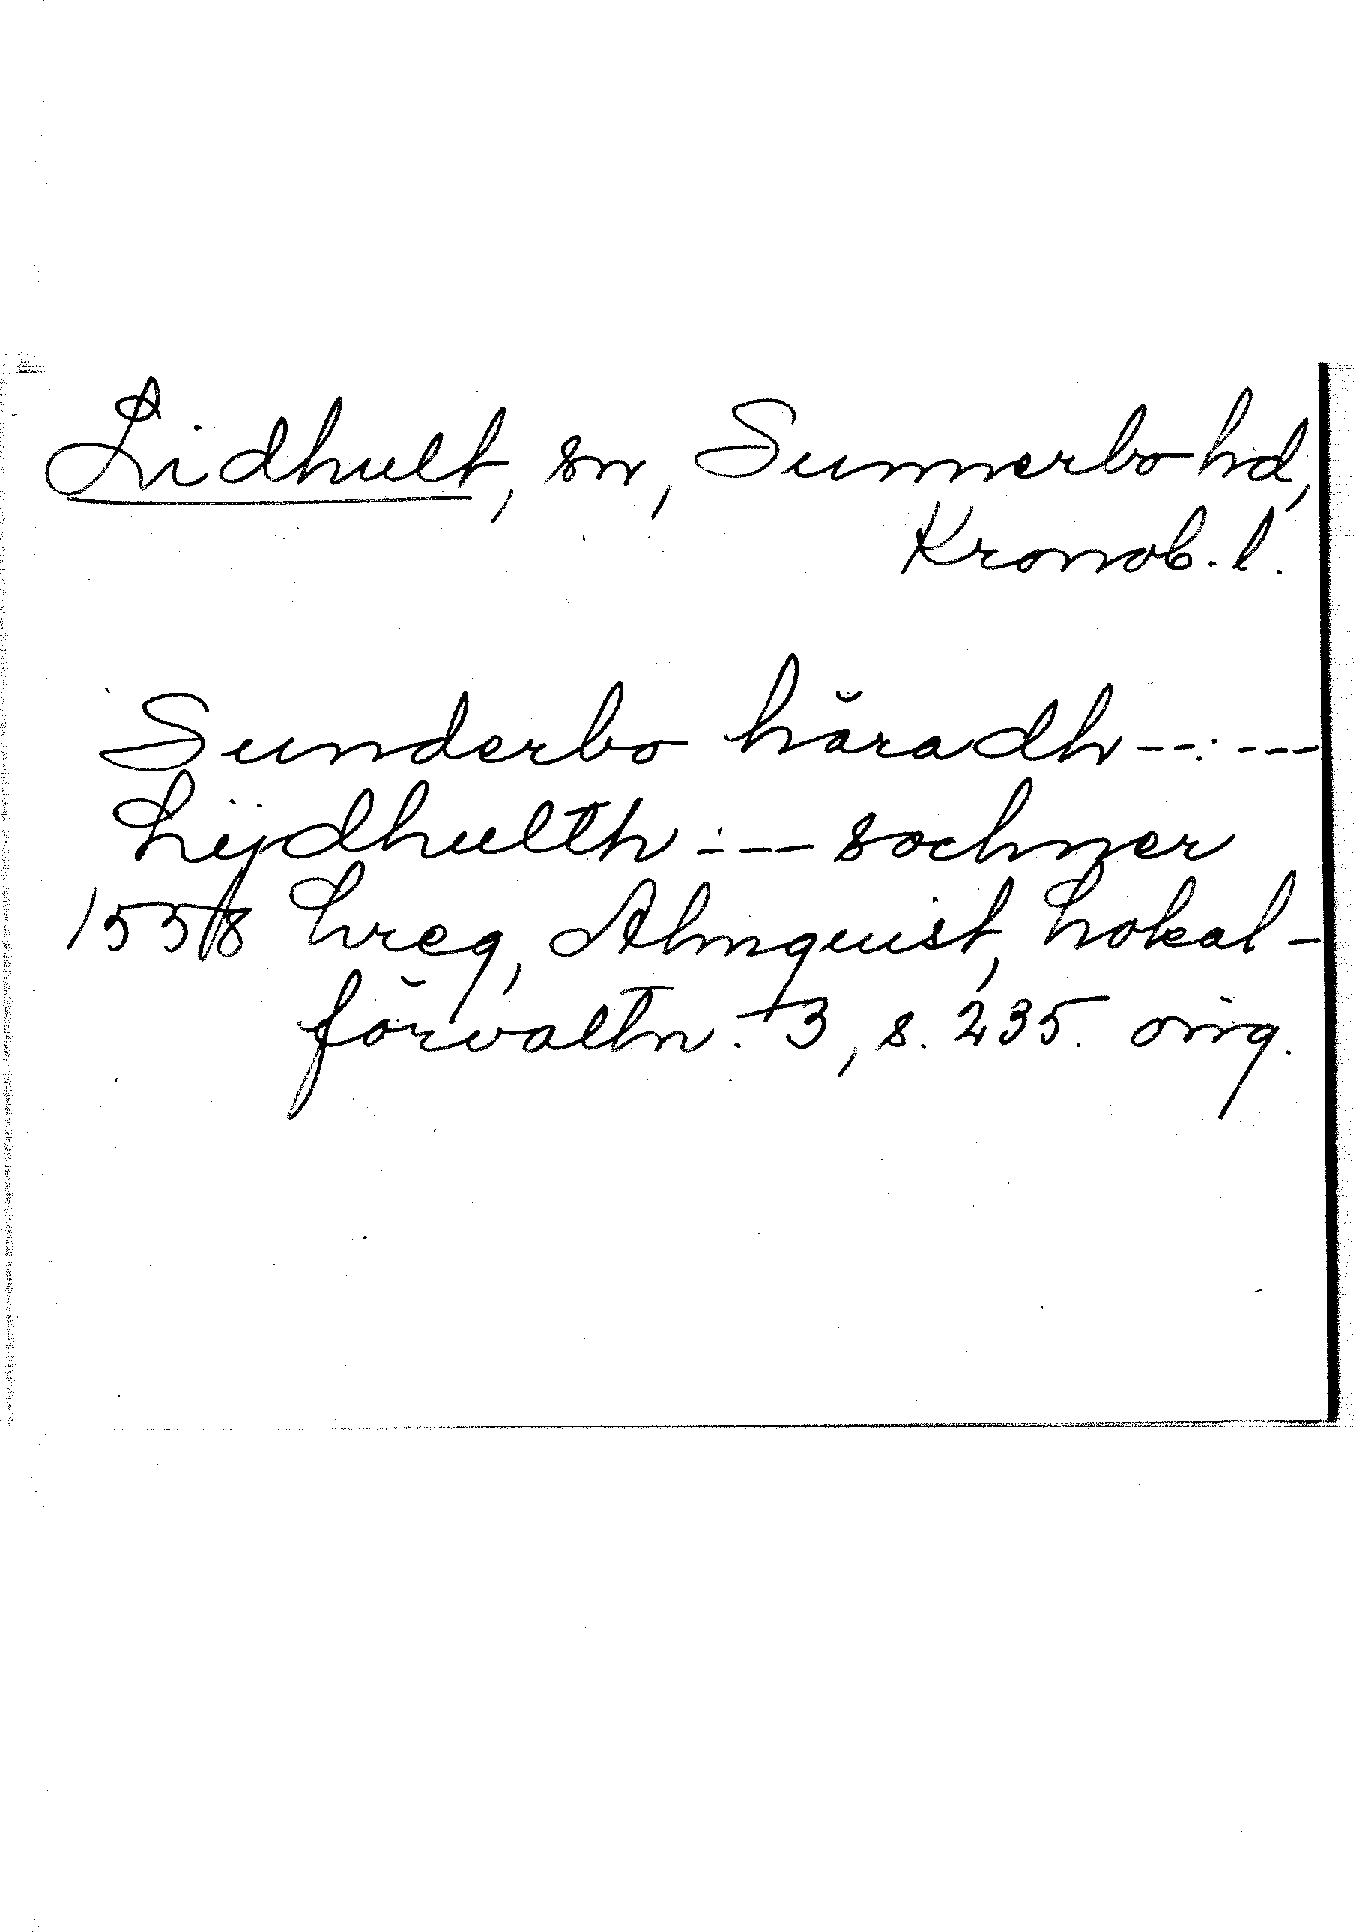 Lidhult, sn, Sunnerbo hd,
Kronob. l.
Sunderbo häradh --:---
Lijdhulth :-- sochner
1558 Lreg, Almquist, Lokal-
förvaltn. 3, s. 235. orig.